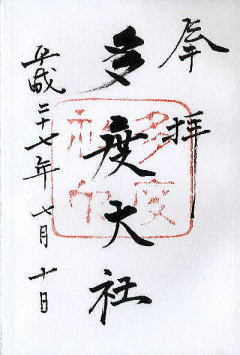 奉拝
多度大社
平成二十七年七月十日